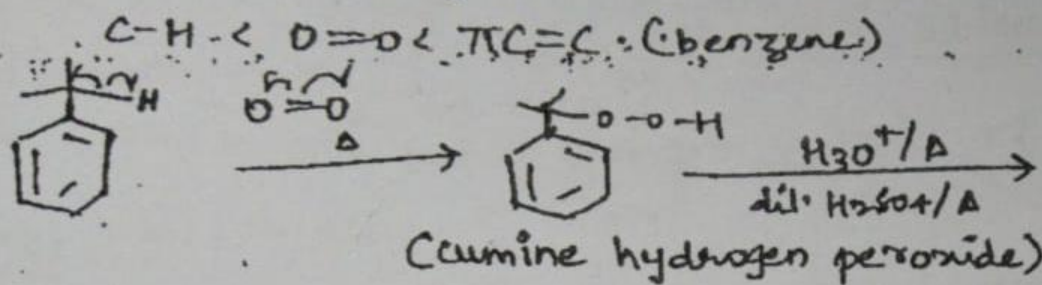 C-H < O=O < πC=C (benzene)
H O=O Δ
O-O-H H3O+/Δ
dil. H2SO4/Δ
(cumine hydrogen peroxide)